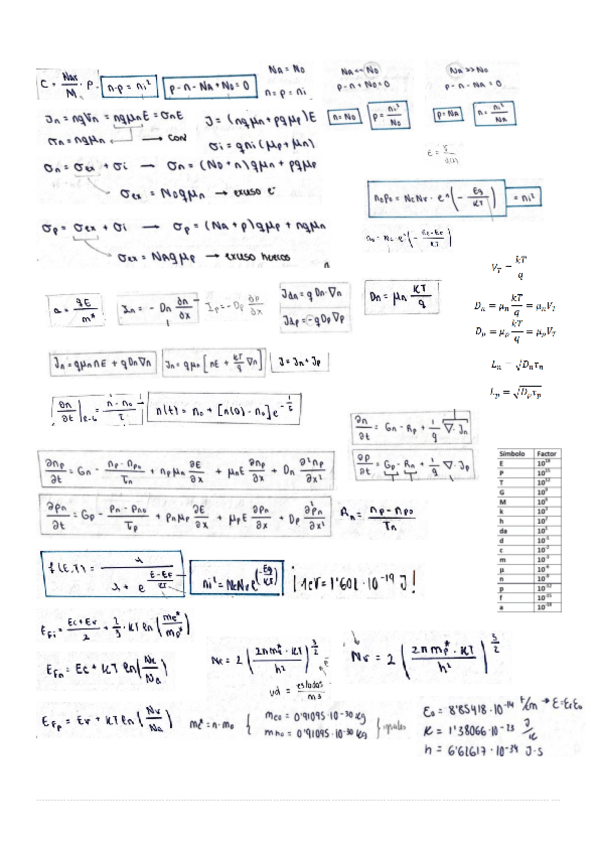 C = Nav/M · ρ
n·p = ni²
p - n - NA + ND = 0
NA = ND
n = p = ni
NA << ND
p - n + ND = 0
n = ND
p = ni²/ND
NA >> ND
p - n - NA = 0
p = NA
n = ni²/NA
Jn = nqVn = nqμnE = σnE
J = (nqμn + pqμp)E
σn = nqμn → con
σi = qni(μp + μn)
σn = σex + σi → σn = (ND + n)qμn + pqμp
σex = NDqμn → exceso e⁻
n0p0 = NcNv · e^(-Eg/KT) = ni²
σp = σex + σi → σp = (NA + p)qμp + nqμn
σex = NAqμp → exceso huecos
n
VT = kT/q
a = qE/m*
Jn = -Dn ∂n/∂x
Ip = -Dp ∂p/∂x
Jdn = q Dn·∇n
Jdp = -q Dp ∇p
Dn = μn KT/q
Dn = μn kT/q = μnVT
Dp = μp kT/q = μpVT
Jn = qμnnE + qDn∇n
Jn = qμn[nE + KT/q ∇n]
J = Jn + Jp
Ln = √Dnτn
Lp = √Dpτp
n(t) = n0 + [n(0) - n0]e^(-t/τ)
∂n/∂t = Gn - Rp + 1/q ∇·Jn
∂p/∂t = Gp - Rn + 1/q ∇·Jp
∂np/∂t = Gn - (np - np0)/τn + npμn ∂E/∂x + μnE ∂np/∂x + Dn ∂²np/∂x²
∂pn/∂t = Gp - (pn - pn0)/τp + pnμp ∂E/∂x + μpE ∂pn/∂x + Dp ∂²pn/∂x²
Rn = (np - np0)/τn
Símbolo Factor
E 10¹⁸
P 10¹⁵
T 10¹²
G 10⁹
M 10⁶
k 10³
h 10²
da 10¹
d 10⁻¹
c 10⁻²
m 10⁻³
μ 10⁻⁶
n 10⁻⁹
p 10⁻¹²
f 10⁻¹⁵
a 10⁻¹⁸
f(E,T) = 1/(1 + e^((E-EF)/KT))
ni² = NcNve^(-Eg/KT)
1eV = 1'602 · 10⁻¹⁹ J!
EFn = Ec + KT ln(
Nc = 2(2πme*·KT/h²)^(3/2)
Nv = 2(2πmp*·KT/h²)^(3/2)
ud = estados/m³
EFp = Ev + KT ln(Nv/NA)
me* = n·m0
me0 = 0'91095·10⁻³⁰ kg
mh0 = 0'91095·10⁻³⁰ kg
iguales
E0 = 8'85418·10⁻¹⁴ F/cm → E = ErE0
K = 1'38066·10⁻²³ J/K
h = 6'62617·10⁻³⁴ J·s